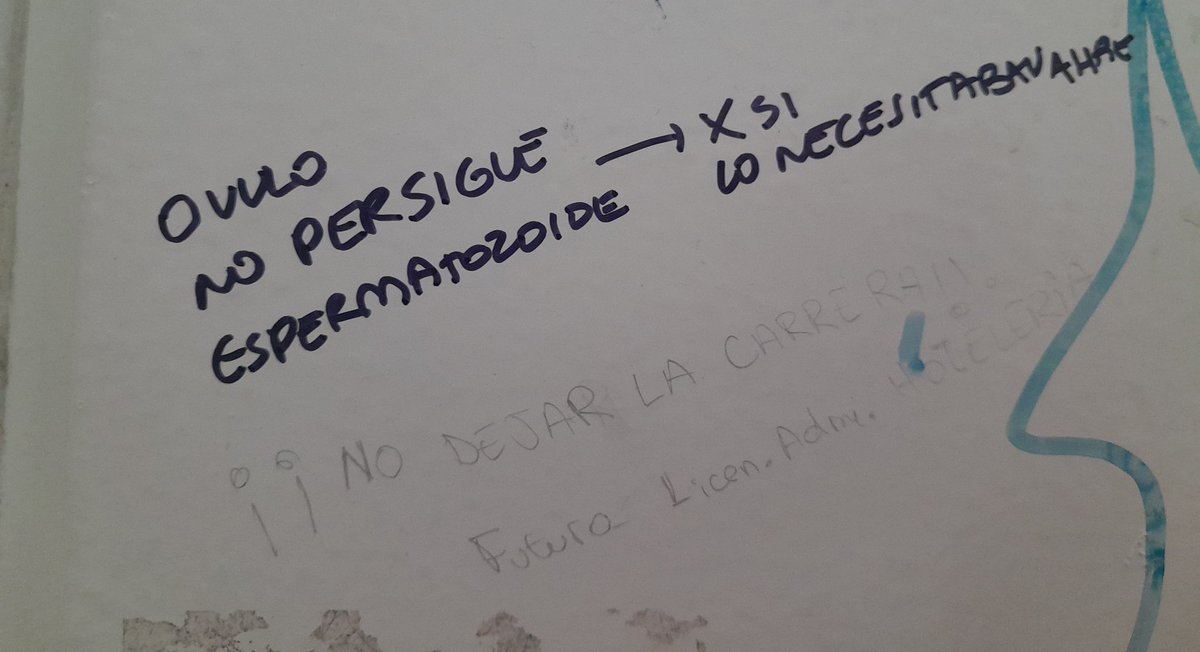 OVULO
NO PERSIGUE → X SI
ESPERMATOZOIDE LO NECESITABAN AHRE
¡¡ NO DEJAR LA CARRERA!!
Futura Licen. Admi. HOTELERIA